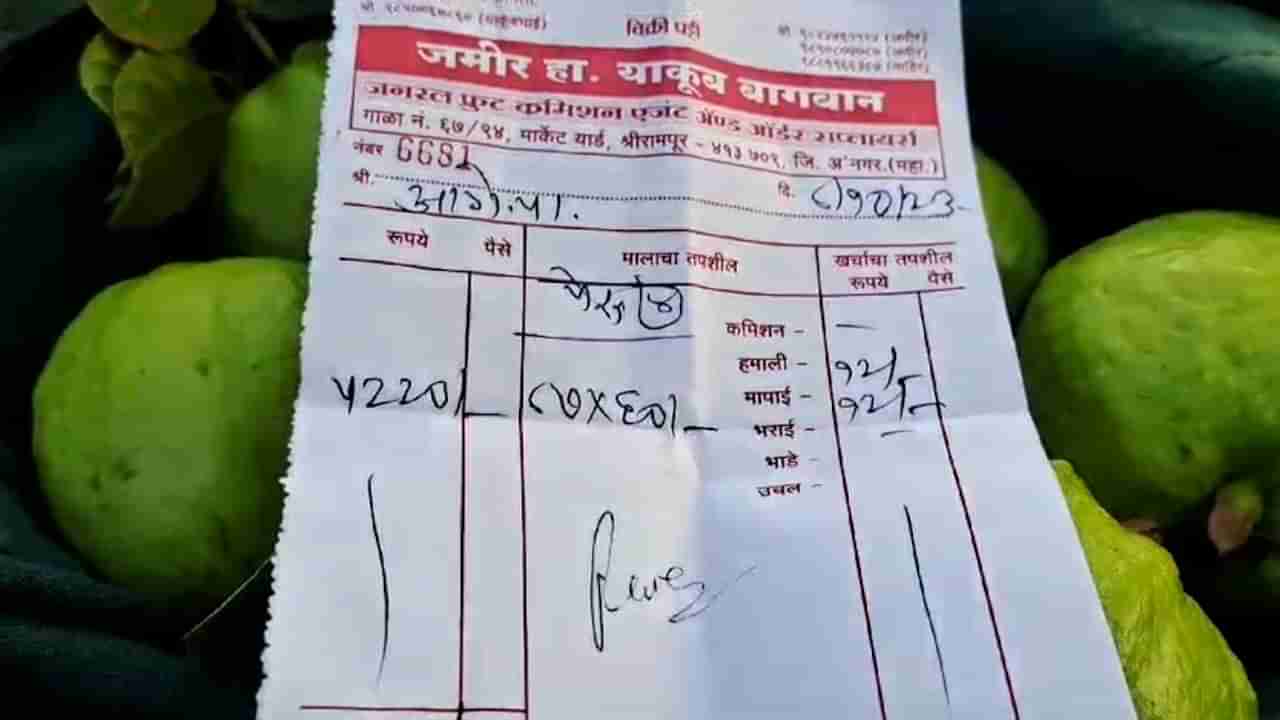 विक्री पट्टी
जमीर हा. याकूब बागवान
जनरल फ्रुट कमिशन एजंट ॲण्ड ऑर्डर सप्लायर्स
गाळा नं. ६७/९४, मार्केट यार्ड, श्रीरामपूर - ४१३ ७०९, जि. अ'नगर.(महा.)
नंबर 6681
श्री. दि.
रूपये पैसे मालाचा तपशील खर्चाचा तपशील
रूपये पैसे
पेरू ४
कमिशन -
हमाली - १२/-
५२२०/- ८७×६०/- मापाई - १२/-
भराई -
भाडे -
उचल -